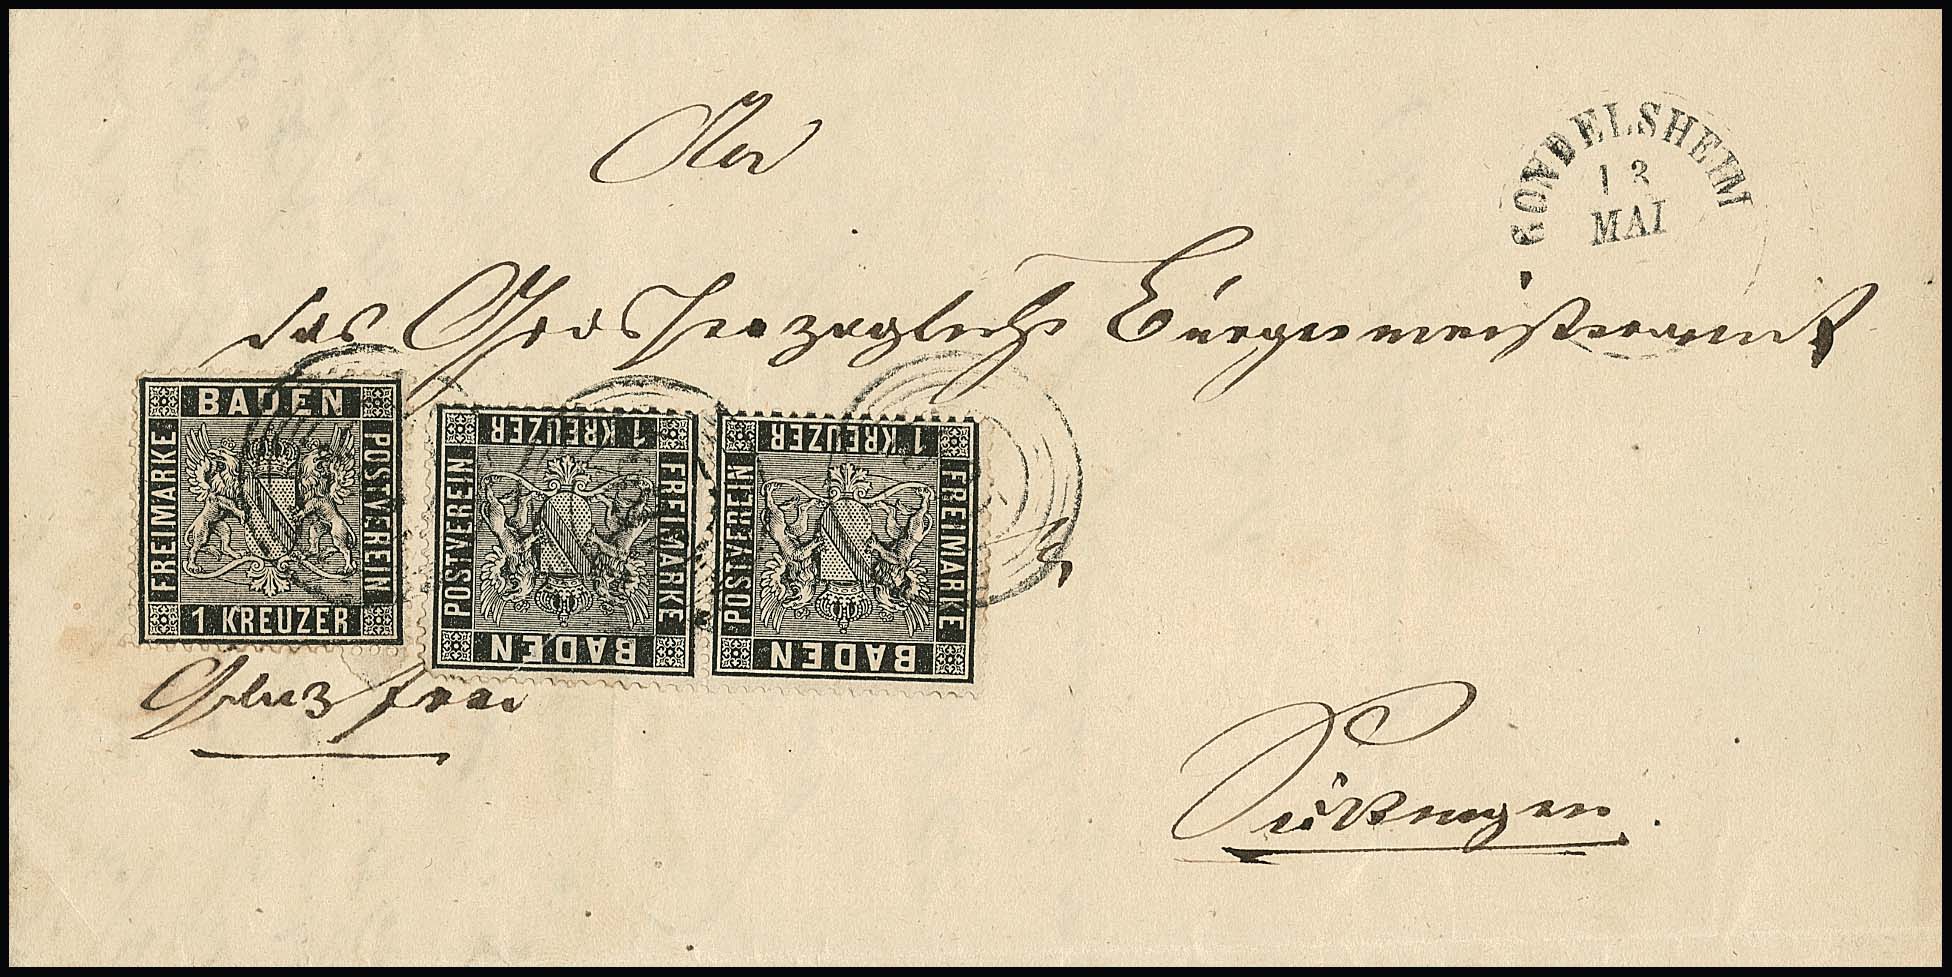 An
GONDELSHEIM
13
MAI
das Grosherzogliche Bürgermeisteramt
BADEN
FREIMARKE
POSTVEREIN
1 KREUZER
1 KREUZER
POSTVEREIN
FREIMARKE
BADEN
1 KREUZER
POSTVEREIN
FREIMARKE
BADEN
frei